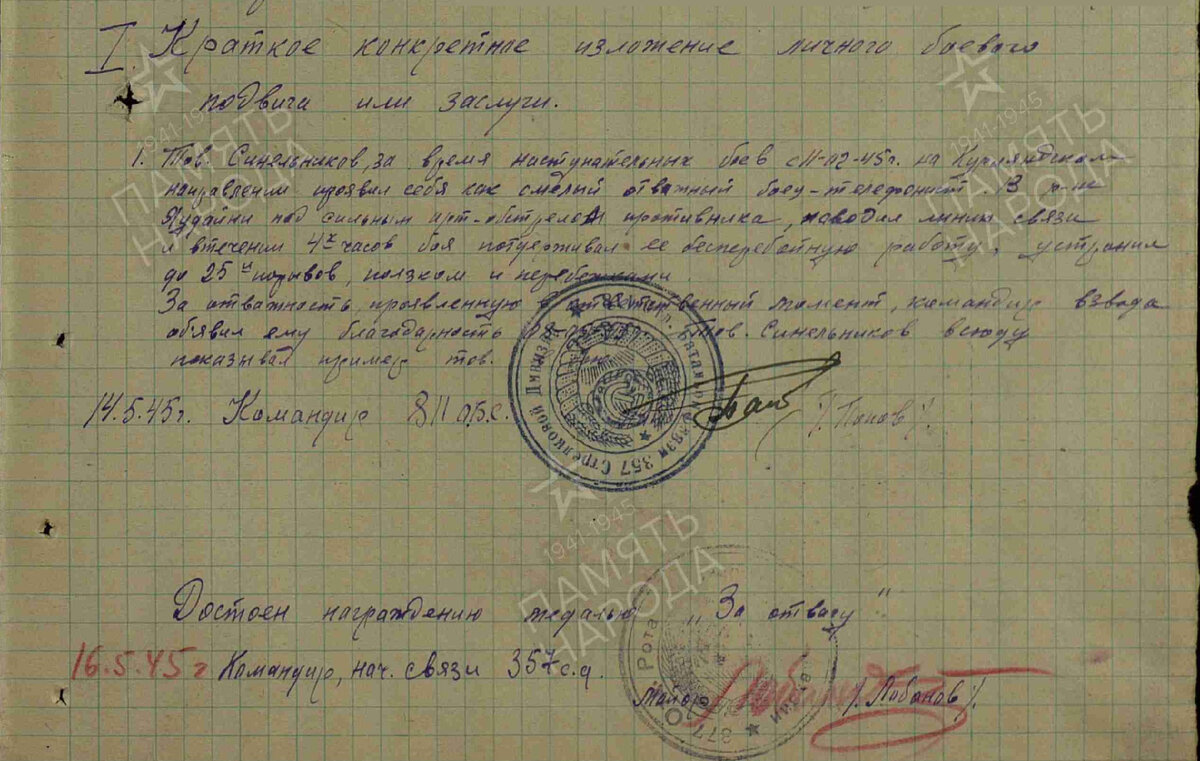 I. Краткое конкретное изложение личного боевого
подвига или заслуги.
1. Тов. Синельников, за время наступательных боев с 11-02-45г. на Курляндском
направлении проявил себя как смелый отважный боец-телефонист. В р-не
под сильным арт-обстрелом противника, наводил линию связи
и втечении 4х часов боя поддерживал ее бесперебойную работу, устранил
до 25ти порывов, ползком и перебежками
За отважность, проявленную в ответственный момент, командир взвода
объявил ему благодарность Тов. Синельников всюду
показывал пример тов.
14.5.45г. Командир 811 обс. /Попов/.
Батальон Связи 357 Стрелковой Дивизии
Достоен награждению медалью "За отвагу"
16.5.45г Командир, нач. связи 357 с.д.
майор /Лобанов/.
Рота
877
1941-1945
ПАМЯТЬ
НАРОДА
1941-1945
ПАМЯТЬ
НАРОДА
1941-1945
ПАМЯТЬ
НАРОДА